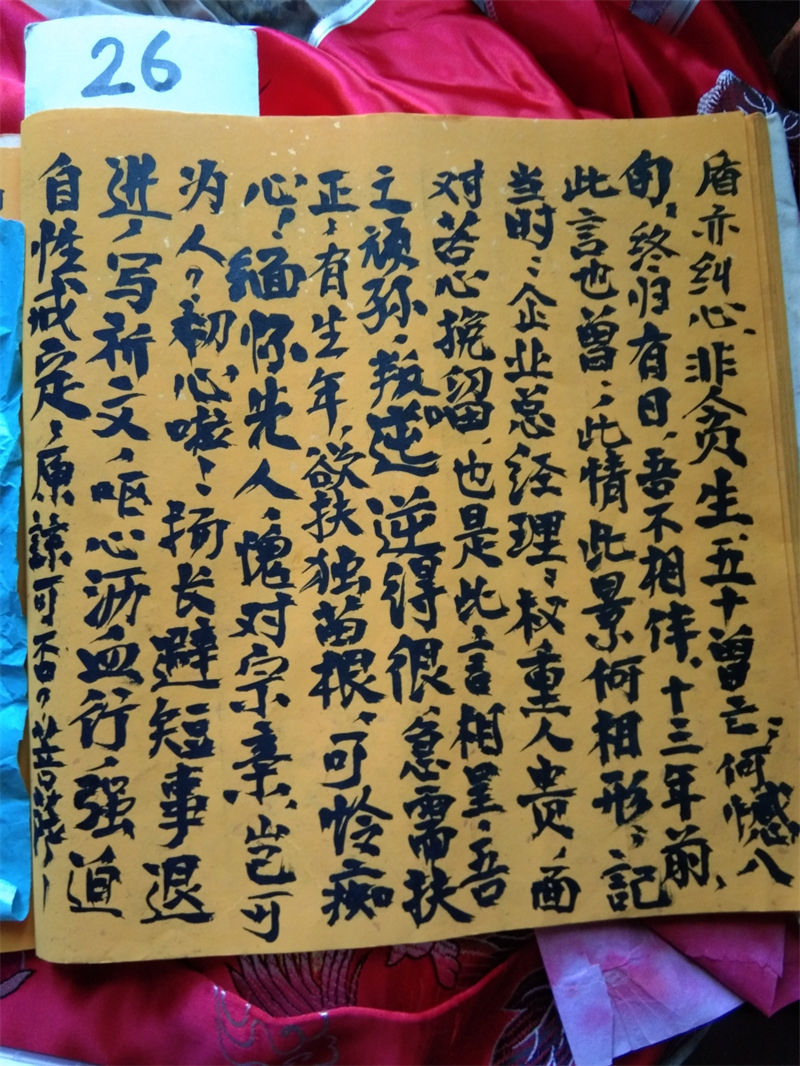 26
盾亦纠心、非贪生、五十曾亡、何憾八
旬、终归有日、吾不相伴、十三年前、
此言也曾、此情此景何相形、记
当时、企业总经理、权重人贵、面
对苦心挽留、也是此言相呈、吾
之顽孙、叛逆逆得很、急需扶
正、有生年、欲扶独苗根、可怜痴
心、缅怀先人、愧对宗亲、岂可
为人？初心啦！扬长避短事退
进、写祈文、呕心沥血行、强迫
自性戒定、原谅可否？苦